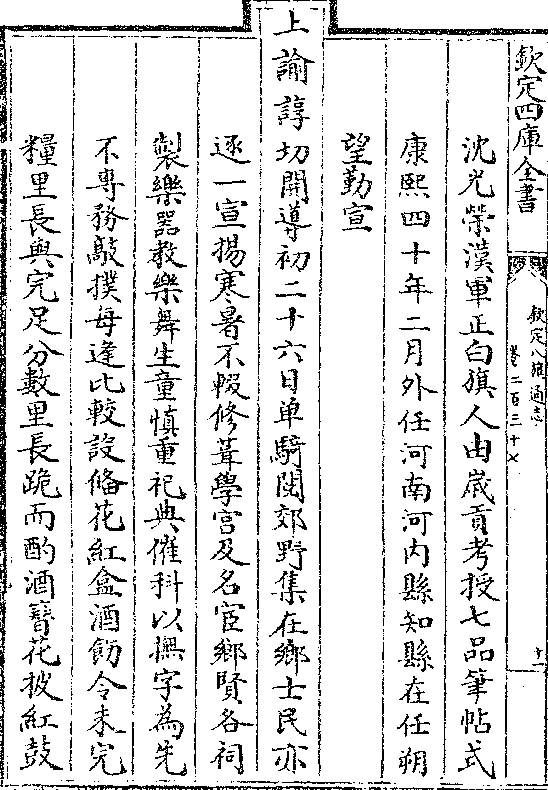 欽定四庫全書
欽定八旗通志
卷二百三十七
十一
沈光榮漢軍正白旗人由歲貢考授七品筆帖式
康熙四十年二月外任河南河內縣知縣在任朔
望勤宣
上諭諄切開導初二十六日单騎閱郊野集在鄉士民亦
逐一宣揚寒暑不輟修葺學宮及名宦鄉賢各祠
製樂器教樂舞生童慎重祀典催科以撫字為先
不專務敲撲每逢比較設備花紅盒酒飭令未完
糧里長與完足分數里長跪而酌酒簪花披紅鼓